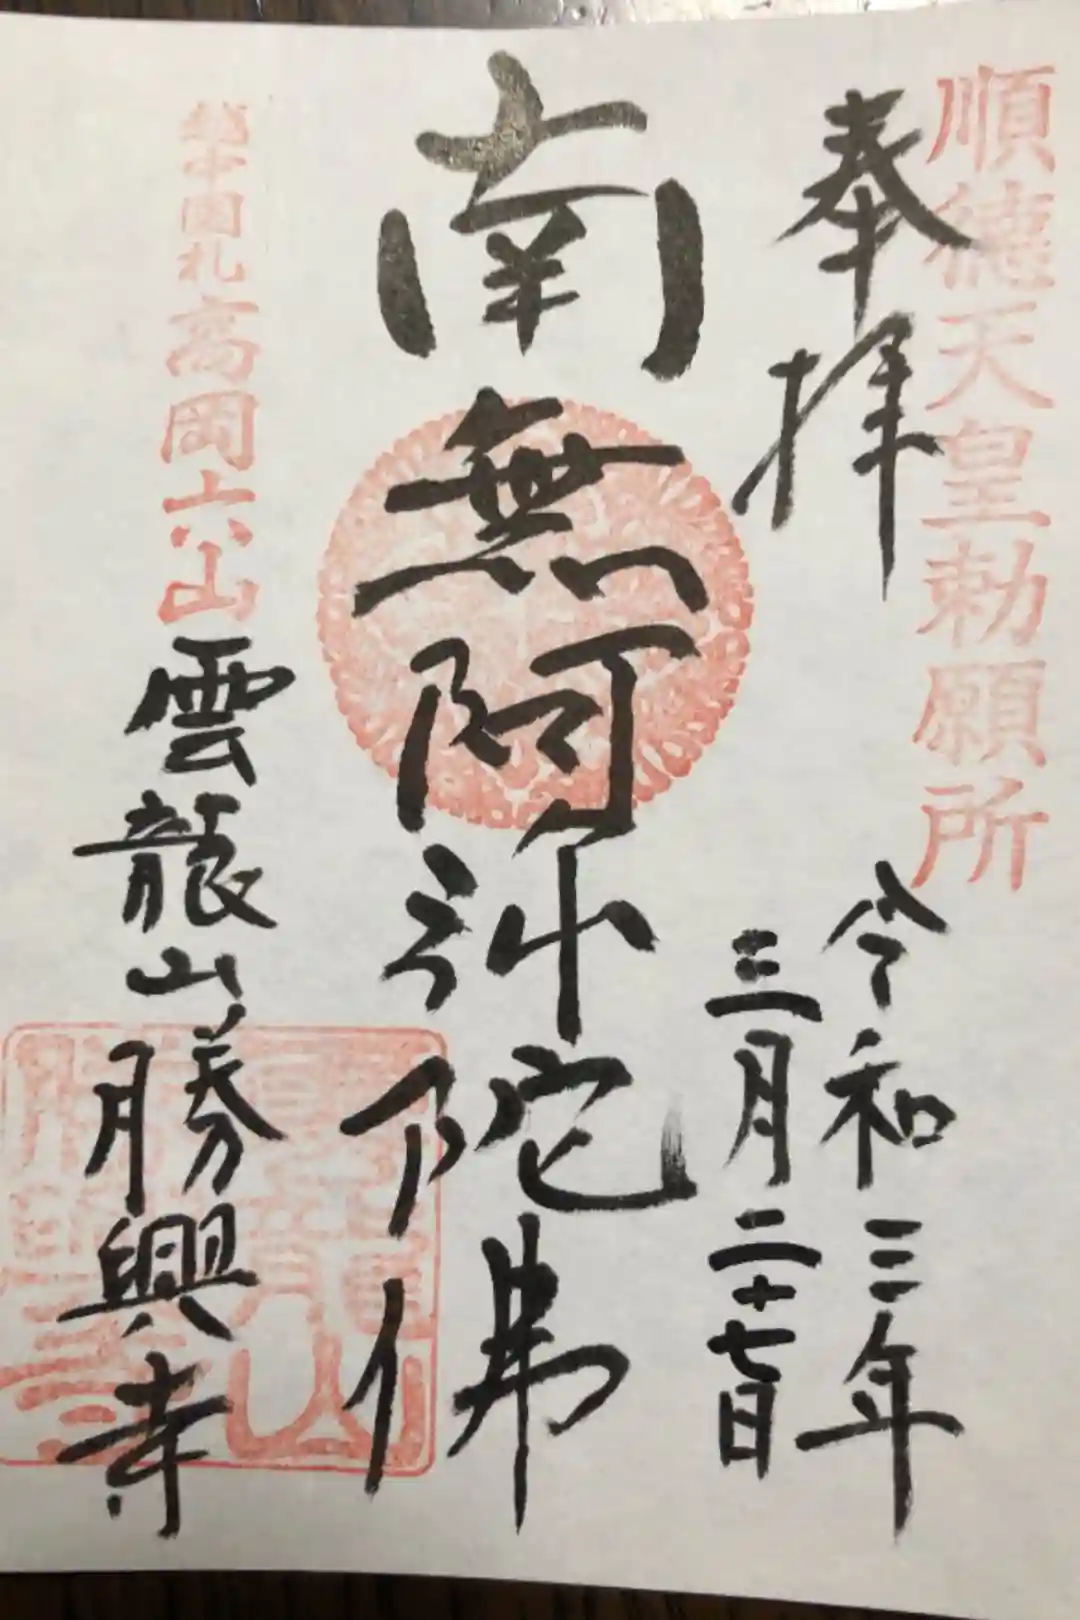 順德天皇勅願所
奉拝
令和三年
三月二十七日
南無阿弥陀佛
越中国札高岡六山
雲龍山勝興寺